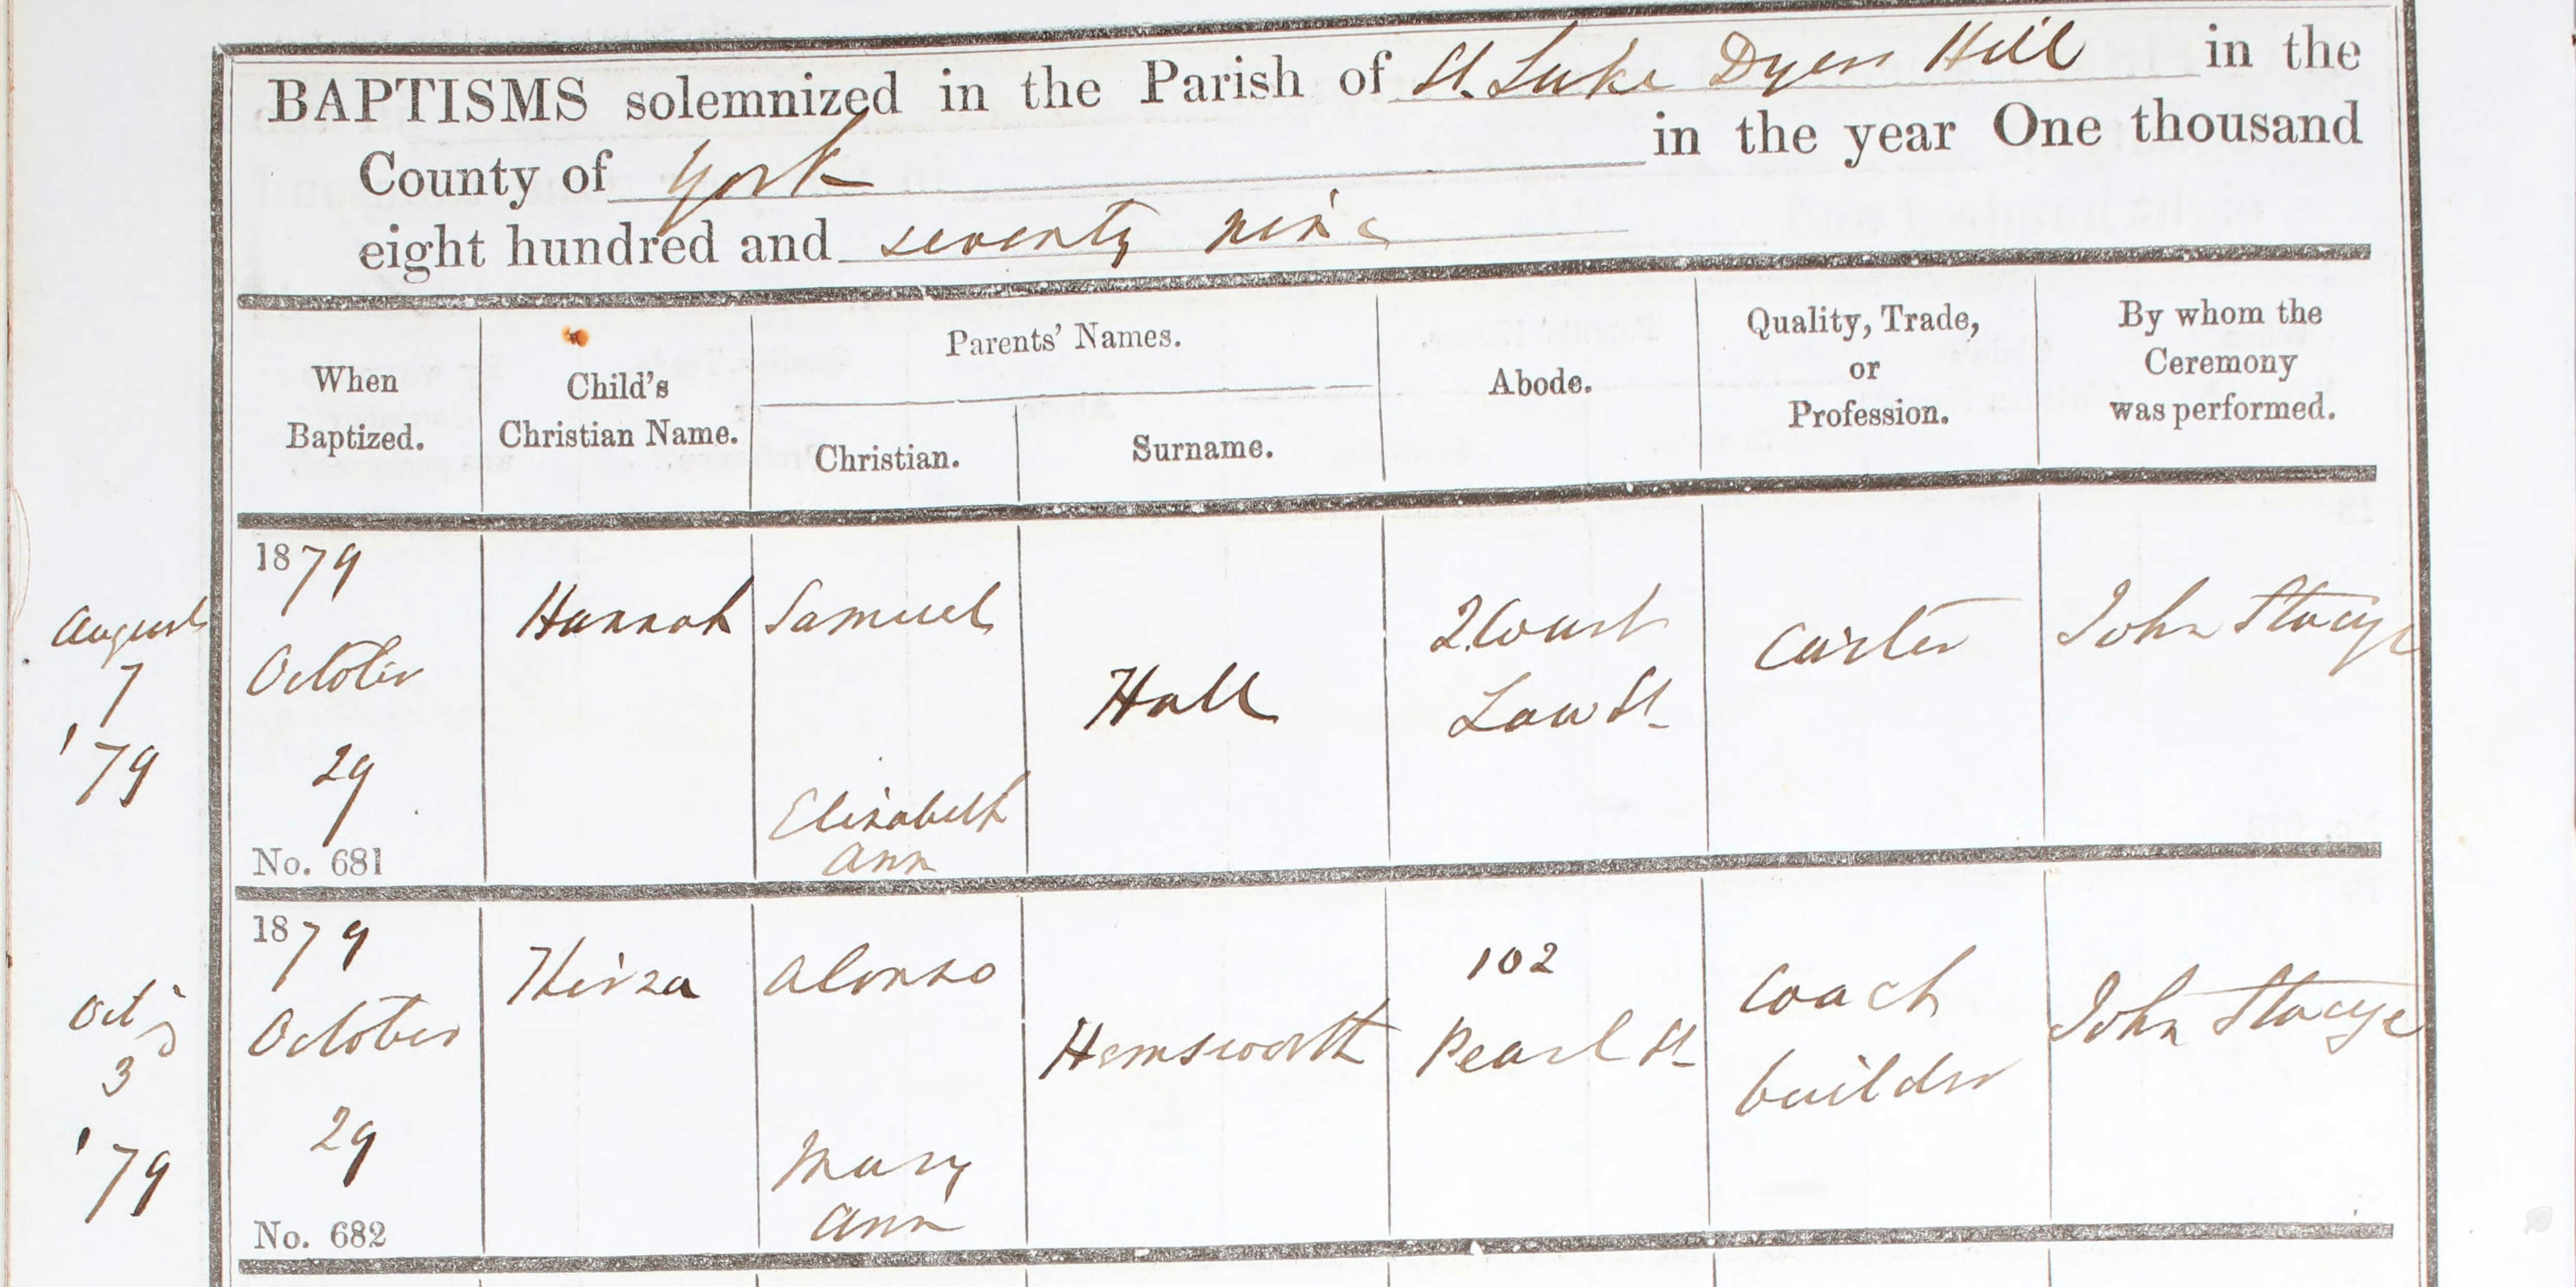 BAPTISMS solemnized in the Parish of St. Luke Dyers Hill in the
County of York in the year One thousand
eight hundred and seventy nine
When Baptized.
Child's Christian Name.
Parents' Names.
Christian.
Surname.
Abode.
Quality, Trade, or Profession.
By whom the Ceremony was performed.
August
7
'79
1879
October
29
No. 681
Hannah
Samuel
Elizabeth
Ann
Hall
2 Court
Law St
Carter
John Stacye
Oct
3
'79
1879
October
29
No. 682
Thirza
Alonzo
Mary
Ann
Hemsworth
102
Pearl St
Coach
builder
John Stacye